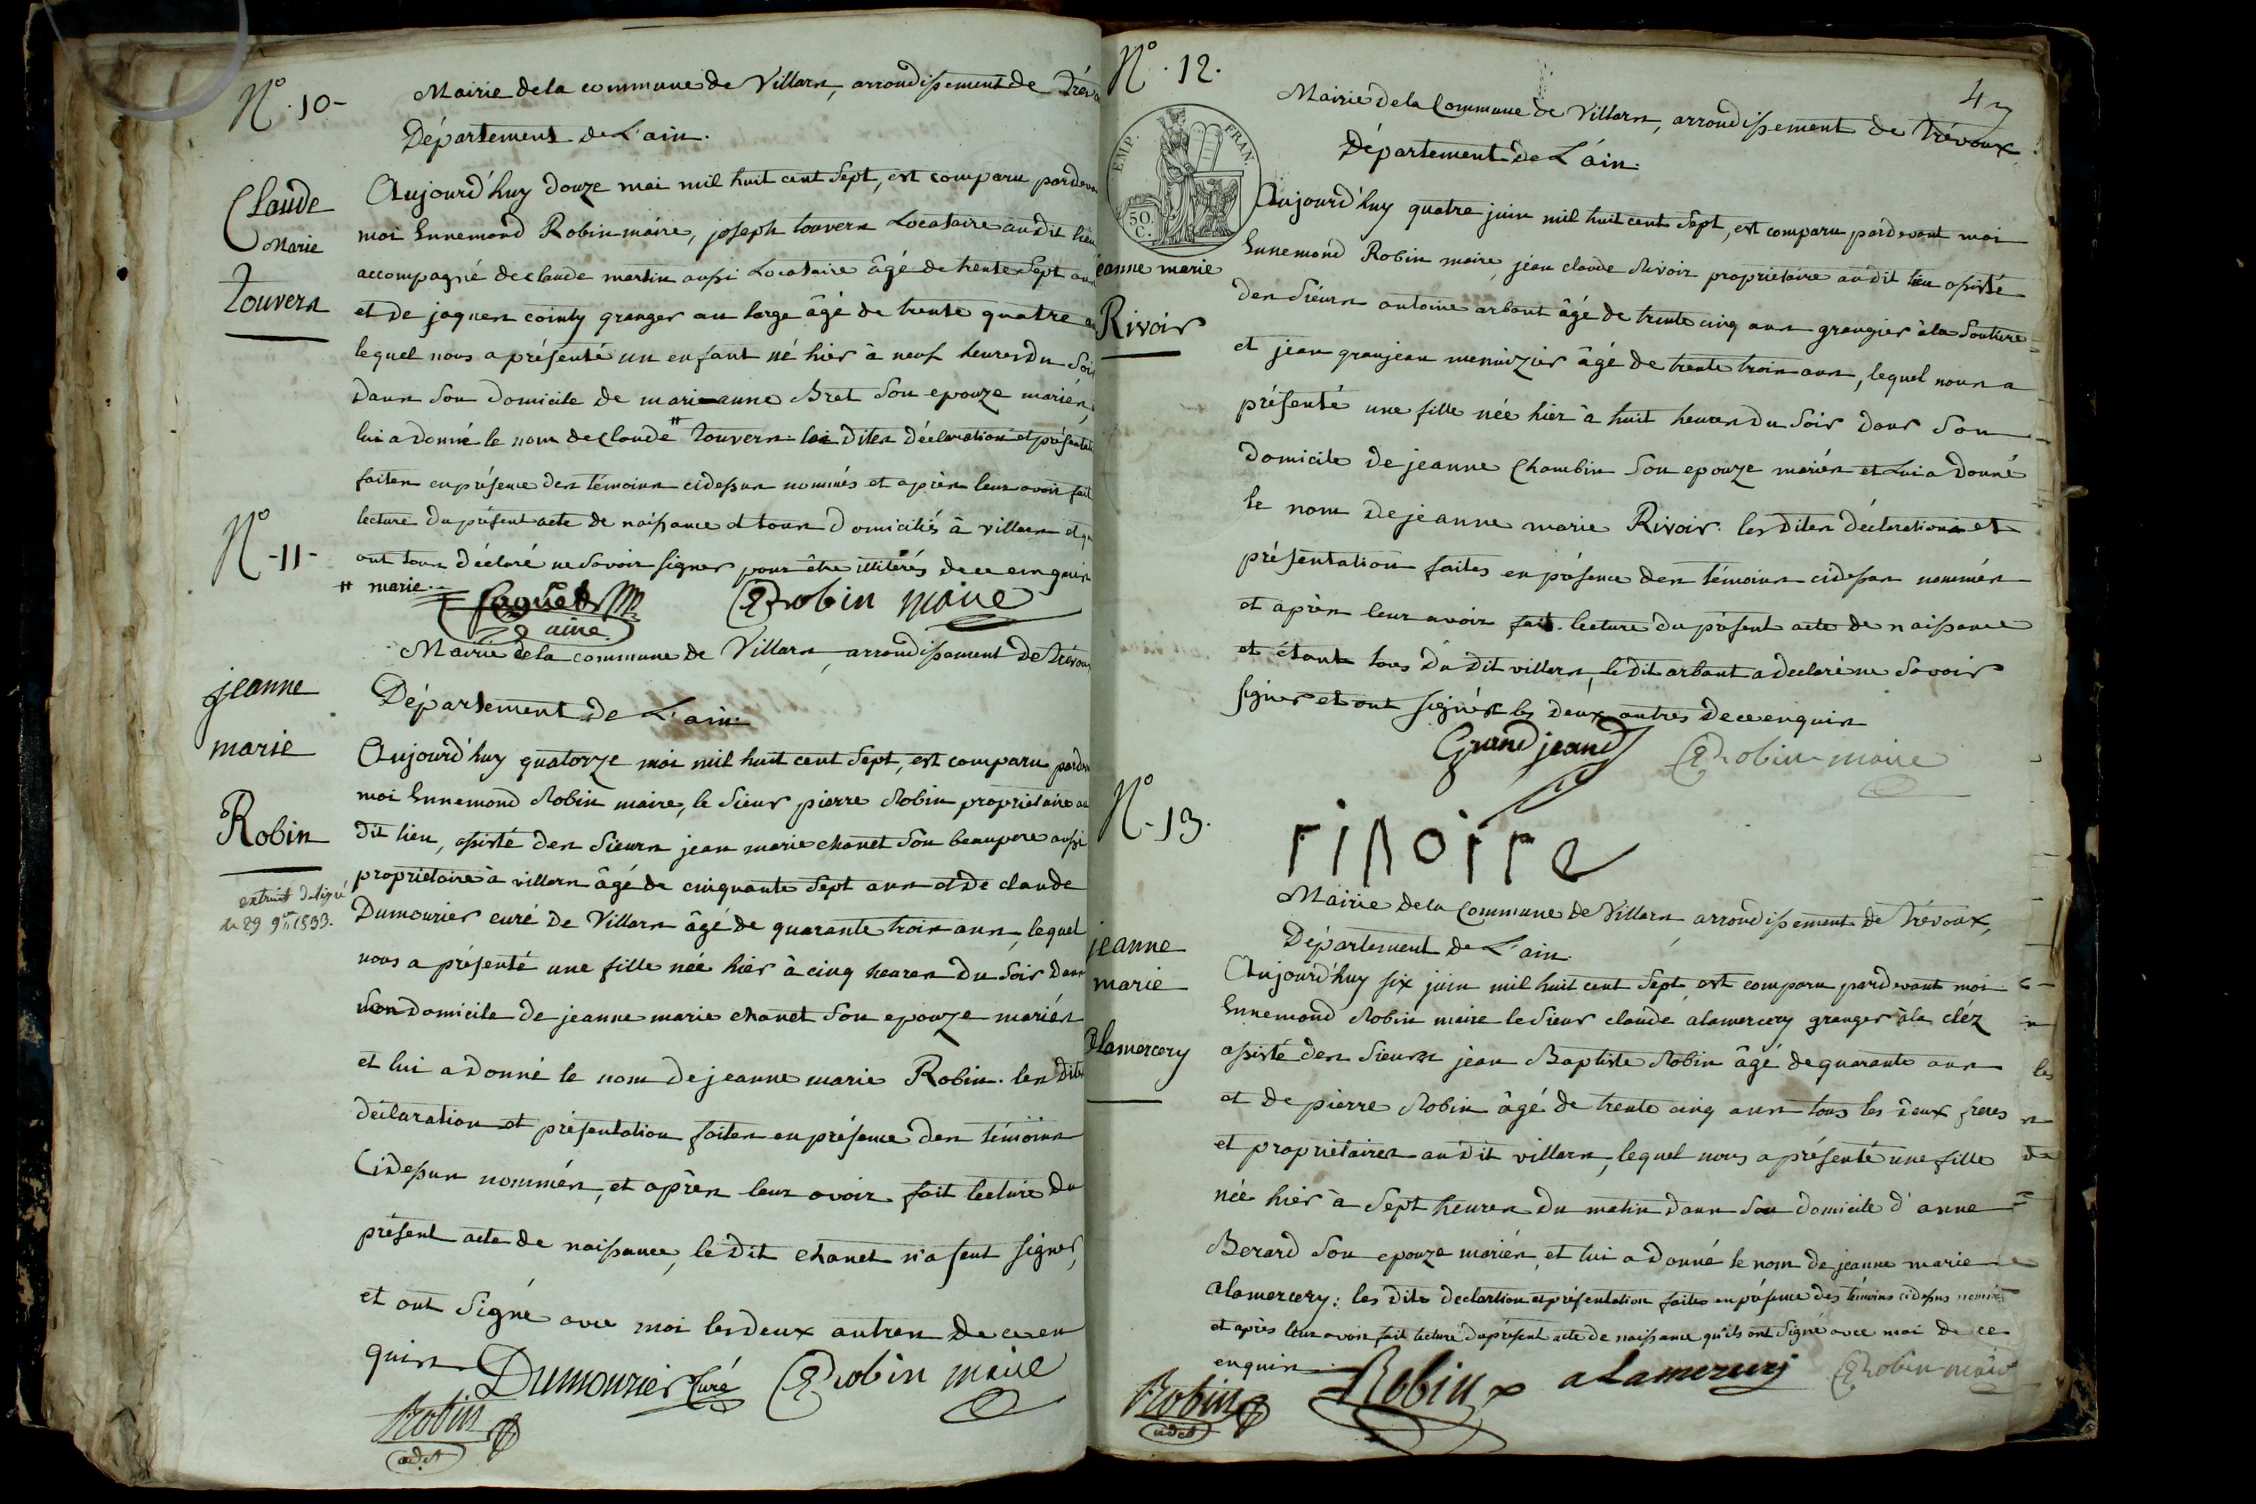 N.° 10-
Mairie de la commune de Villars, arrondissement de Trévo
Département de L'ain.
Claude
Marie
Touvers
Aujourd'huy douze mai mil huit cent Sept, est comparu pardevan
moi Ennemond Robin maire, joseph touvers Locataire audit lieu
accompagné de claude martin aussi Locataire âgé de trente Sept ans
et de jaques cointy granger au large âgé de trente quatre an
lequel nous a présenté un enfant né hier à neuf heures du Soir
dans Son domicile de marianne Bret Son epouze mariés,
lui a donné le nom de Claude # Touvers les dites déclaration et présentat
faites en présence des témoins cidessus nommés et après leur avoir fait
lecture du présent acte de naissance et tous domiciliés à villars et qu
ont tous déclaré ne Savoir Signer pour être illitérés de ce enquis
# marie.
aine
Robin maire
N.° -11-
Mairie de la commune de Villars, arrondissement de Trévoux
Département de L'ain.
jeanne
marie
Robin
extrait délivré
le 29 9bre 1893.
Aujourd'huy quatorze mai mil huit cent Sept, est comparu pardev
moi Ennemond Robin maire, le Sieur pierre Robin propriétaire au
dit lieu, assisté des Sieurs jean marie chanet Son beaupere aussi
propriétaire à villars âgé de cinquante Sept ans et de claude
Dumourier curé de Villars âgé de quarante trois ans, lequel
nous a présenté une fille née hier à cinq heures du Soir dans
Son domicile de jeanne marie chanet Son epouze mariés
et lui a donné le nom de jeanne marie Robin. les dites
déclaration et présentation faites en présence des témoins
Cidessus nommés, et après leur avoir fait lecture du
présent acte de naissance, le dit chanet n'a seut Signer,
et ont Signé avec moi les deux autres de ce en
quis
Dumourier Curé
Robin maire
Robin
adjt
N.° 12.
47
EMP. FRAN.
50.
C.
Mairie de la Commune de Villars, arrondissement de Trévoux
Département de L'ain.
jeanne marie
Rivoir
Aujourd'huy quatre juin mil huit cent Sept, est comparu pardevant moi
Ennemond Robin maire, jean claude Rivoir propriétaire audit lieu assisté
des Sieurs antoine arbant âgé de trente cinq ans grangier à la
et jean granjean menuizier âgé de trente trois ans, lequel nous a
présenté une fille née hier à huit heures du Soir dans Son
domicile de jeanne Chambin Son epouze mariés et Lui a donné
le nom de jeanne marie Rivoir. les dites déclarations et
présentation faites en présence des témoins cidessus nommés
et après leur avoir fait lecture du présent acte de naissance
et étant tous du dit villars, le dit arbant a declaré ne Savoir
Signer et ont Signés les deux autres de ce enquis
Grand jean
Robin maire
rivoire
N.° 13.
Mairie de la Commune de Villars arrondissement de Trévoux,
Département de L'ain.
jeanne
marie
alamercery
Aujourd'huy Six juin mil huit cent Sept est comparu pardevant moi
Ennemond Robin maire le Sieur claude alamercery granger à la cléz
assisté des Sieurs jean Baptiste Robin âgé de quarante ans
et de pierre Robin âgé de trente cinq ans tous les deux freres
et propriétaires audit villars, lequel nous a présenté une fille
née hier à Sept heures du matin dans Son domicile d'anne
Berard Son epouze mariés, et lui a donné le nom de jeanne marie
alamercery: les dits declartion et présentation faites en présence des témoins cidessus nommés
et après leur avoir fait lecture du présent acte de naissance qu'ils ont Signé avec moi de ce
enquis
Robin
adjt
Robin
alamercery
Robin maire